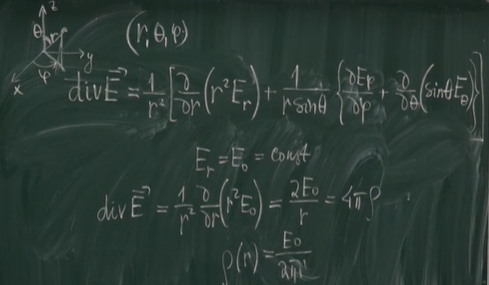 z
θ r
y
x φ
(r, θ, φ)
div E⃗ = 1/r² [ ∂/∂r (r² E_r) + 1/(r sinθ) { ∂E_φ/∂φ + ∂/∂θ (sinθ E_θ) }
E_r = E_0 = const
div E⃗ = 1/r² ∂/∂r (r² E_0) = 2E_0/r = 4πρ
ρ(r) = E_0/2πr